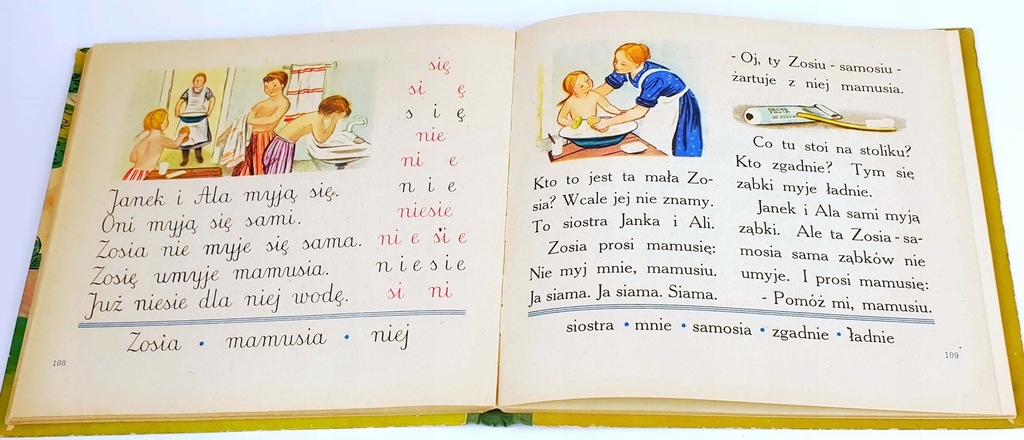 się
si ę
s i ę
nie
ni e
n i e
niesie
ni e si e
n i e s i e
si ni
Janek i Ala myją się.
Oni myją się sami.
Zosia nie myje się sama.
Zosię umyje mamusia.
Już niesie dla niej wodę.
Zosia • mamusia • niej
108
Kto to jest ta mała Zo-
sia? Wcale jej nie znamy.
To siostra Janka i Ali.
Zosia prosi mamusię:
Nie myj mnie, mamusiu.
Ja siama. Ja siama. Siama.
- Oj, ty Zosiu - samosiu -
żartuje z niej mamusia.
PASTA
Co tu stoi na stoliku?
Kto zgadnie? Tym się
ząbki myje ładnie.
Janek i Ala sami myją
ząbki. Ale ta Zosia - sa-
mosia sama ząbków nie
umyje. I prosi mamusię:
- Pomóż mi, mamusiu.
siostra • mnie • samosia • zgadnie • ładnie
109